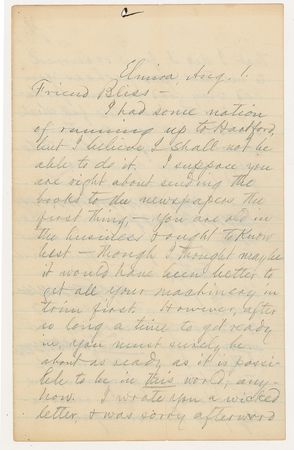 Elmira, Aug. 1.
Friend Bliss—
I had some notion
of running up to Hartford,
but I believe I shall not be
able to do it. I suppose you
are right about sending the
books to the newspapers the
first thing,— You are old in
the business & ought to know
best — though I thought maybe
it would have been better to
get all your machinery in
trim first. However, after
so long a time to get ready
in, you must surely be
about as ready as it is possi-
ble to be in this world, any-
how. I wrote you a wicked
letter, & was sorry afterward